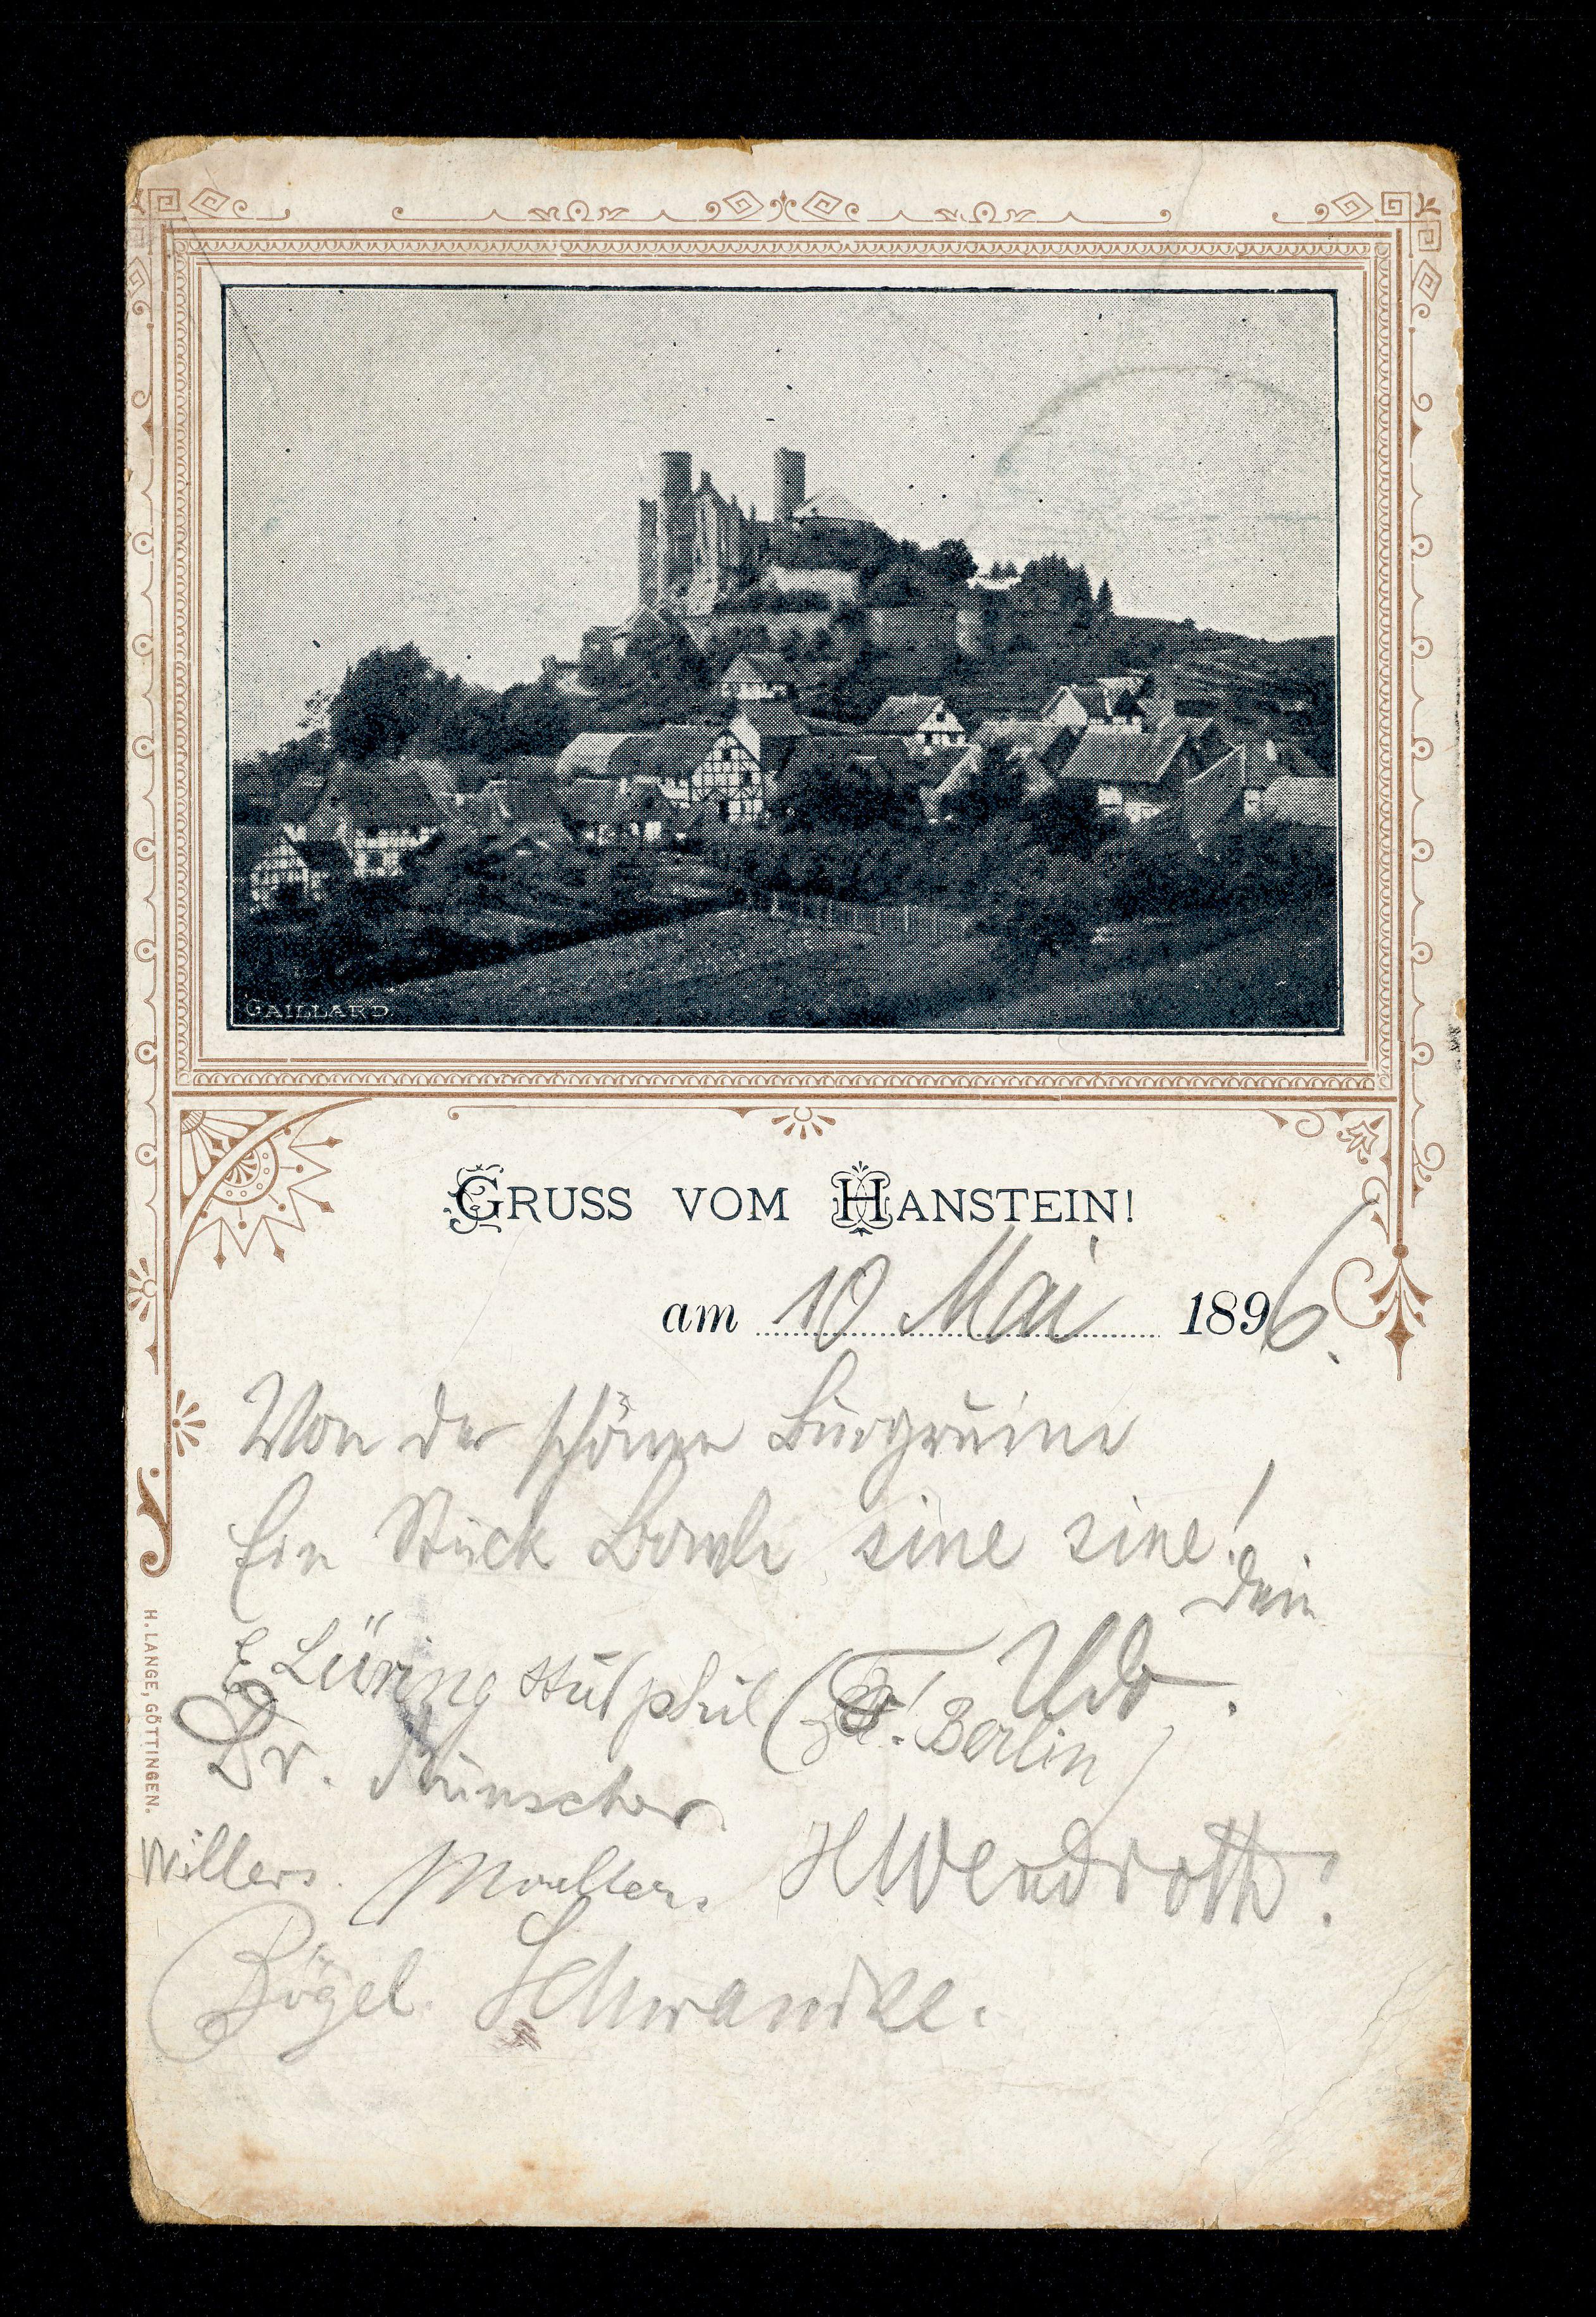 GAILLARD
GRUSS VOM HANSTEIN!
am 10 Mai 1896.
Von der schönen Burgruine
Ein Stück Bowle sine sine!
Dein
Udo.
E Lüring stud phil (z. Z. Berlin)
Dr. Wünscher.
Willers. HWendroth!
Bögel. Schwandke.
H. LANGE, GÖTTINGEN.